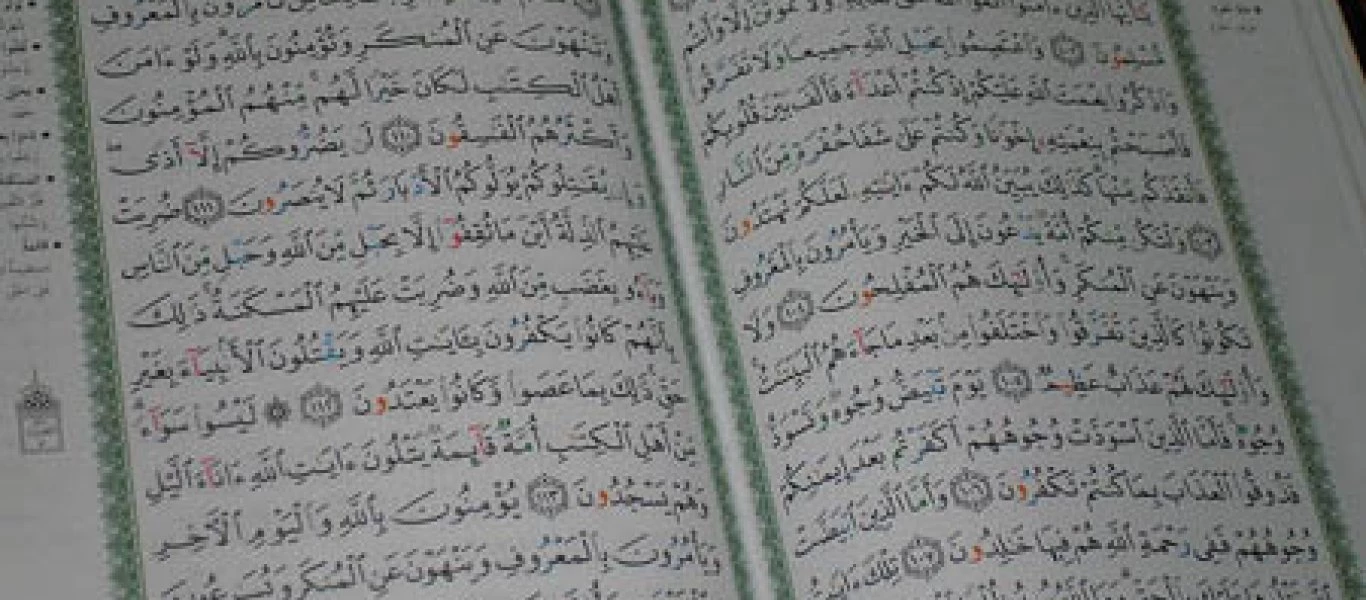 يَٰٓأَيُّهَا ٱلَّذِينَ ءَامَنُوا۟ ٱتَّقُوا۟ ٱللَّهَ حَقَّ تُقَاتِهِۦ وَلَا تَمُوتُنَّ إِلَّا وَأَنتُم
مُّسْلِمُونَ ١٠٢ وَٱعْتَصِمُوا۟ بِحَبْلِ ٱللَّهِ جَمِيعًا وَلَا تَفَرَّقُوا۟
وَٱذْكُرُوا۟ نِعْمَتَ ٱللَّهِ عَلَيْكُمْ إِذْ كُنتُمْ أَعْدَآءً فَأَلَّفَ بَيْنَ قُلُوبِكُمْ
فَأَصْبَحْتُم بِنِعْمَتِهِۦٓ إِخْوَٰنًا وَكُنتُمْ عَلَىٰ شَفَا حُفْرَةٍ مِّنَ ٱلنَّارِ
فَأَنقَذَكُم مِّنْهَا كَذَٰلِكَ يُبَيِّنُ ٱللَّهُ لَكُمْ ءَايَٰتِهِۦ لَعَلَّكُمْ تَهْتَدُونَ
١٠٣ وَلْتَكُن مِّنكُمْ أُمَّةٌ يَدْعُونَ إِلَى ٱلْخَيْرِ وَيَأْمُرُونَ بِٱلْمَعْرُوفِ
وَيَنْهَوْنَ عَنِ ٱلْمُنكَرِ وَأُو۟لَٰٓئِكَ هُمُ ٱلْمُفْلِحُونَ ١٠٤ وَلَا
تَكُونُوا۟ كَٱلَّذِينَ تَفَرَّقُوا۟ وَٱخْتَلَفُوا۟ مِنۢ بَعْدِ مَا جَآءَهُمُ ٱلْبَيِّنَٰتُ
وَأُو۟لَٰٓئِكَ لَهُمْ عَذَابٌ عَظِيمٌ ١٠٥ يَوْمَ تَبْيَضُّ وُجُوهٌ وَتَسْوَدُّ
وُجُوهٌ فَأَمَّا ٱلَّذِينَ ٱسْوَدَّتْ وُجُوهُهُمْ أَكَفَرْتُم بَعْدَ إِيمَٰنِكُمْ
فَذُوقُوا۟ ٱلْعَذَابَ بِمَا كُنتُمْ تَكْفُرُونَ ١٠٦ وَأَمَّا ٱلَّذِينَ ٱبْيَضَّتْ
وُجُوهُهُمْ فَفِى رَحْمَةِ ٱللَّهِ هُمْ فِيهَا خَٰلِدُونَ ١٠٧ تِلْكَ ءَايَٰتُ
تَأْمُرُونَ بِٱلْمَعْرُوفِ
وَتَنْهَوْنَ عَنِ ٱلْمُنكَرِ وَتُؤْمِنُونَ بِٱللَّهِ وَلَوْ ءَامَنَ
أَهْلُ ٱلْكِتَٰبِ لَكَانَ خَيْرًا لَّهُم مِّنْهُمُ ٱلْمُؤْمِنُونَ
وَأَكْثَرُهُمُ ٱلْفَٰسِقُونَ ١١٠ لَن يَضُرُّوكُمْ إِلَّآ أَذًى
وَإِن يُقَٰتِلُوكُمْ يُوَلُّوكُمُ ٱلْأَدْبَارَ ثُمَّ لَا يُنصَرُونَ ١١١ ضُرِبَتْ
عَلَيْهِمُ ٱلذِّلَّةُ أَيْنَ مَا ثُقِفُوٓا۟ إِلَّا بِحَبْلٍ مِّنَ ٱللَّهِ وَحَبْلٍ مِّنَ ٱلنَّاسِ
وَبَآءُو بِغَضَبٍ مِّنَ ٱللَّهِ وَضُرِبَتْ عَلَيْهِمُ ٱلْمَسْكَنَةُ ذَٰلِكَ
بِأَنَّهُمْ كَانُوا۟ يَكْفُرُونَ بِـَٔايَٰتِ ٱللَّهِ وَيَقْتُلُونَ ٱلْأَنۢبِيَآءَ بِغَيْرِ
حَقٍّ ذَٰلِكَ بِمَا عَصَوا۟ وَّكَانُوا۟ يَعْتَدُونَ ١١٢ ۞ لَيْسُوا۟ سَوَآءً
مِّنْ أَهْلِ ٱلْكِتَٰبِ أُمَّةٌ قَآئِمَةٌ يَتْلُونَ ءَايَٰتِ ٱللَّهِ ءَانَآءَ ٱلَّيْلِ
وَهُمْ يَسْجُدُونَ ١١٣ يُؤْمِنُونَ بِٱللَّهِ وَٱلْيَوْمِ ٱلْءَاخِرِ
وَيَأْمُرُونَ بِٱلْمَعْرُوفِ وَيَنْهَوْنَ عَنِ ٱلْمُنكَرِ وَيُسَٰرِعُونَ